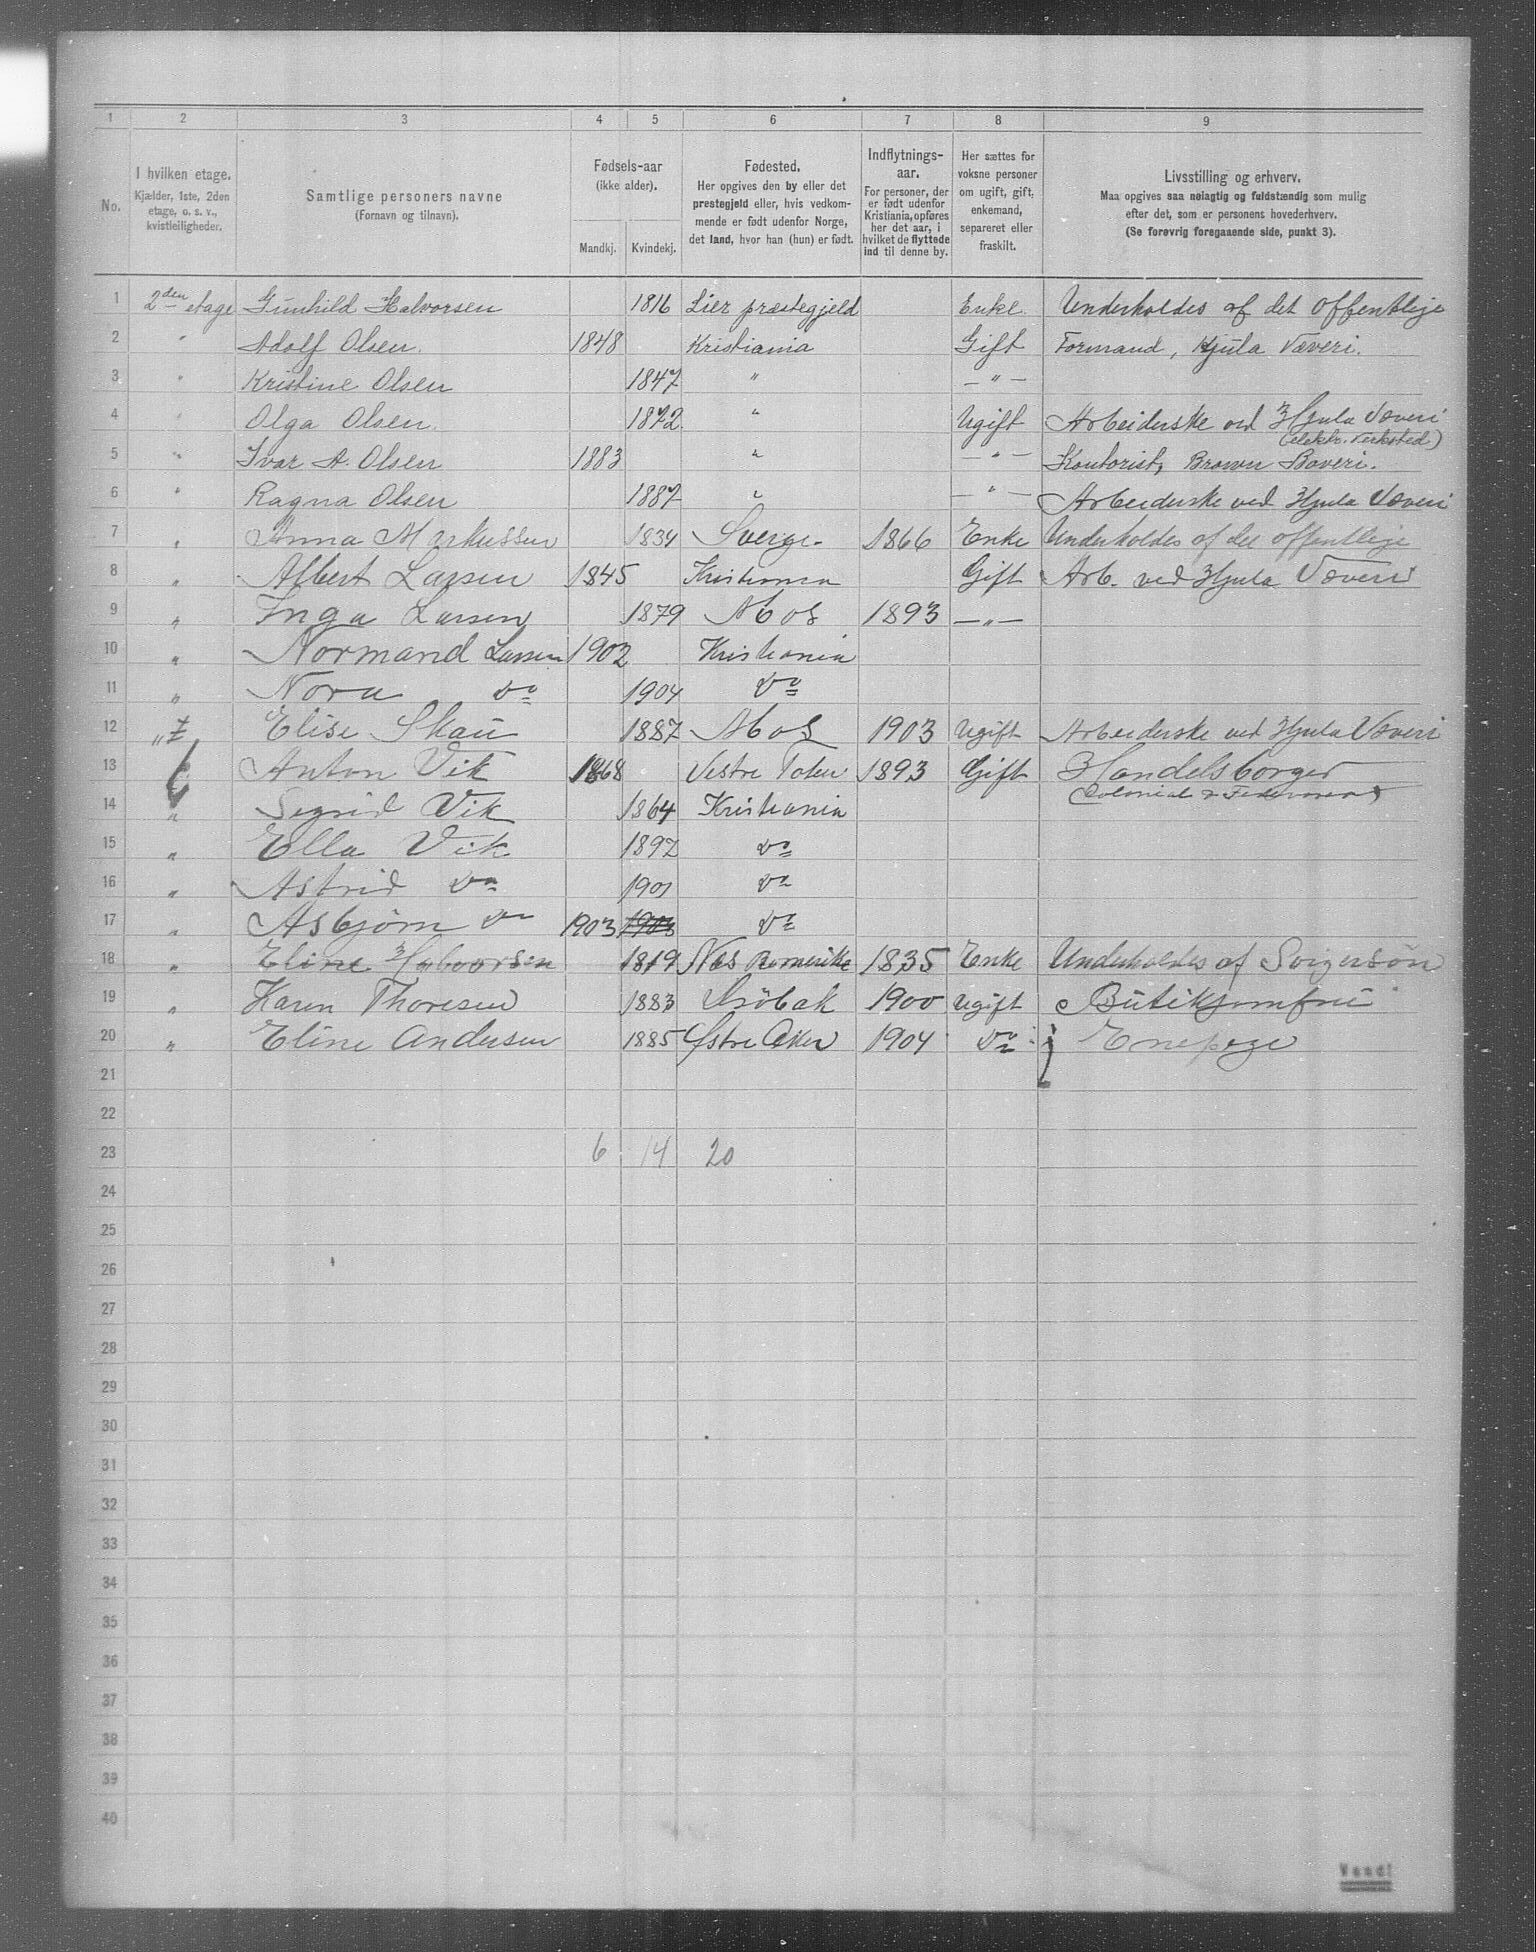 1 2 3 4 5 6 7 8 9
No.
I hvilken etage.
Kjælder, 1ste, 2den
etage, o. s. v.,
kvistleiligheder.
Samtlige personers navne
(Fornavn og tilnavn).
Fødsels-aar
(ikke alder).
Mandkj. Kvindekj.
Fødested.
Her opgives den by eller det
prestegjeld eller, hvis vedkom-
mende er født udenfor Norge,
det land, hvor han (hun) er født.
Indflytnings-
aar.
For personer, der
er født udenfor
Kristiania, opføres
her det aar, i
hvilket de flyttede
ind til denne by.
Her sættes for
voksne personer
om ugift, gift,
enkemand,
separeret eller
fraskilt.
Livsstilling og erhverv.
Maa opgives saa nøiagtig og fuldstændig som mulig
efter det, som er personens hovederhverv.
(Se forøvrig foregaaende side, punkt 3).
1 2den etage Gunhild Halvorsen 1816 Lier præstegjeld Enke Underholdes af det offentlige
2 " Adolf Olsen. 1848 Kristiania Gift Formand, Hjula Væveri.
3 " Kristine Olsen 1847 " — " —
4 " Olga Olsen. 1872 " Ugift Arbeiderske ved Hjula Væveri
(elektr. Verksted)
5 " Ivar A. Olsen 1883 " — " — Kontorist, Brown Boveri.
6 " Ragna Olsen 1887 " — " — Arbeiderske ved Hjula Væveri
7 " Anna Markussen 1834 Sverge 1866 Enke Underholdes af det offentlige
8 " Albert Larsen 1845 Kristiania Gift Arb. ved Hjula Væveri
9 " Inga Larsen 1879 Mos 1893 — " —
10 " Normand Larsen 1902 Kristiania
11 " Nora Do 1904 Do
12 " Elise Skau 1887 Mos 1903 Ugift Arbeiderske ved Hjula Væveri
13 Anton Vik 1868 Vestre Toten 1893 Gift Handelsborger
(Colonial &
14 " Sigrid Vik 1864 Kristiania
15 " Ella Vik 1892 Do
16 " Astrid Do 1901 Do
17 " Asbjørn Do 1903 1903 Do
18 " Eline 1819 Næs Romerike 1835 Enke Underholdes af Svigersøn
19 " Karen Thoresen 1883 Drøbak 1900 Ugift Butikjomfru
20 " Eline Andersen 1885 Østre Aker 1904 Do Enepige
21
22
23 6 14 20
24
25
26
27
28
29
30
31
32
33
34
35
36
37
38
39
40
Vend!